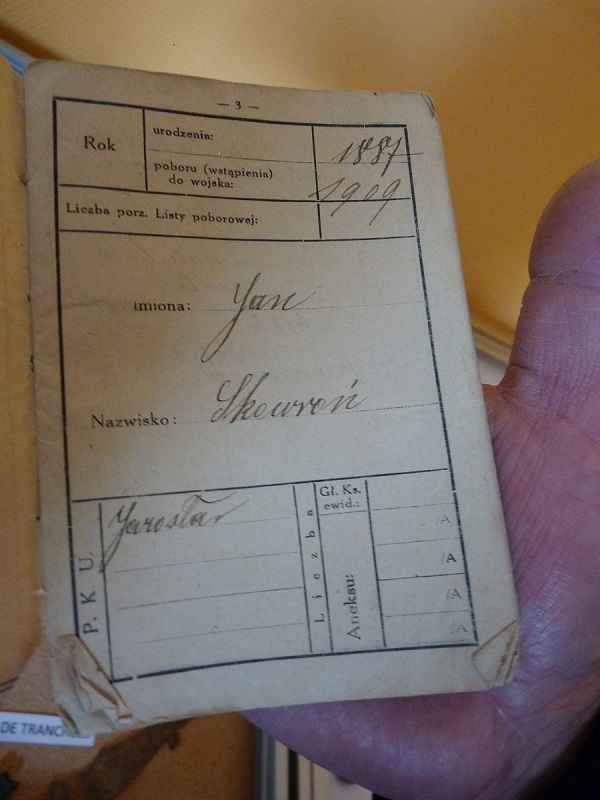 — 3 —
Rok
urodzenia: 1887
poboru (wstąpienia)
do wojska: 1909
Liczba porz. Listy poborowej:
imiona: Jan
Nazwisko: Skowroń
P. K. U.
Jarosław
Liczba
Gł. Ks.
ewid.:
Aneksu:
/A
/A
/A
/A
DE TRANCHÉE